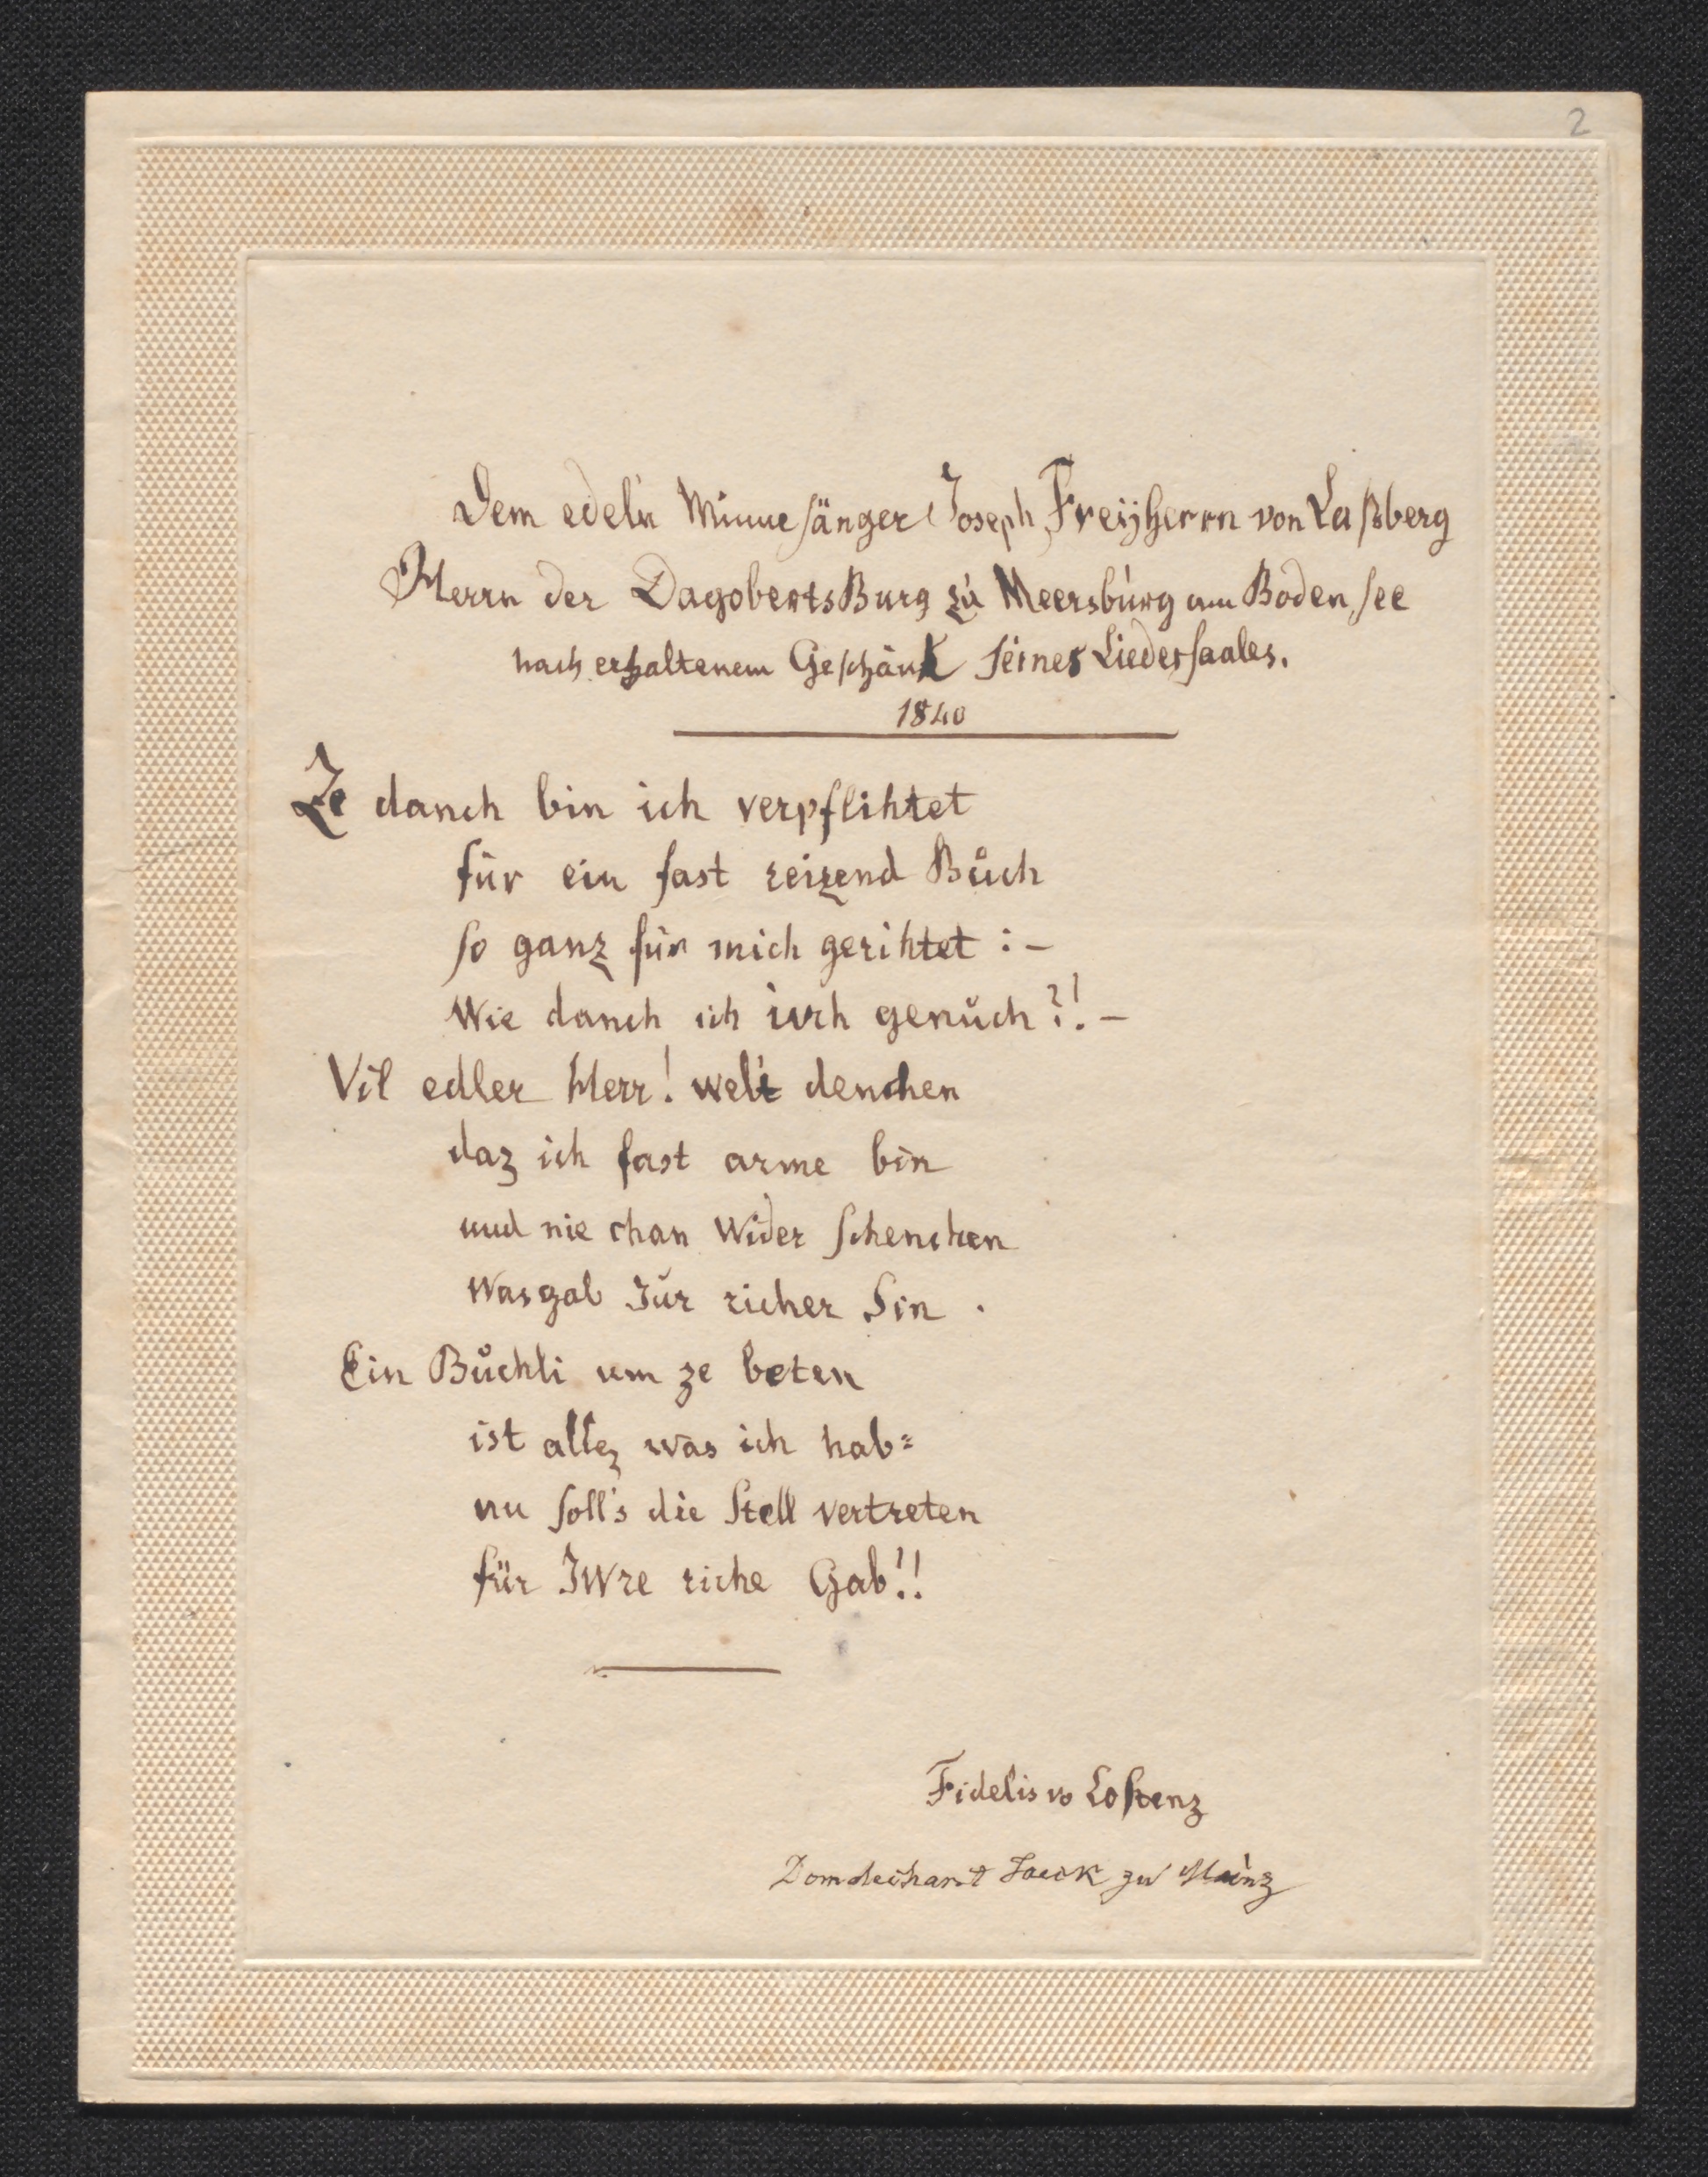 2
Dem edeln Minnesänger Joseph Freÿherrn von Laßberg
Herrn der DagobertsBurg zu Meersburg am Bodensee
nach erhaltenem Geschänk seines Liedersaales.
1840
Ze danch bin ich verpflihtet
für ein fast reizend Bůch
so ganz für mich gerihtet :-
Wie danch ich iuch genůch?! -
Vil edler Herr! welt denchen
daz ich fast arme bin
und nie chan wider schenchen
Was gab Iur richer Sin .
Ein Bůchli um ze beten
ist allez was ich hab=
nu soll's die Stell vertreten
für IWre riche Gab!!
Fidelis v Costenz
Domdechant Jaeck zu Mainz